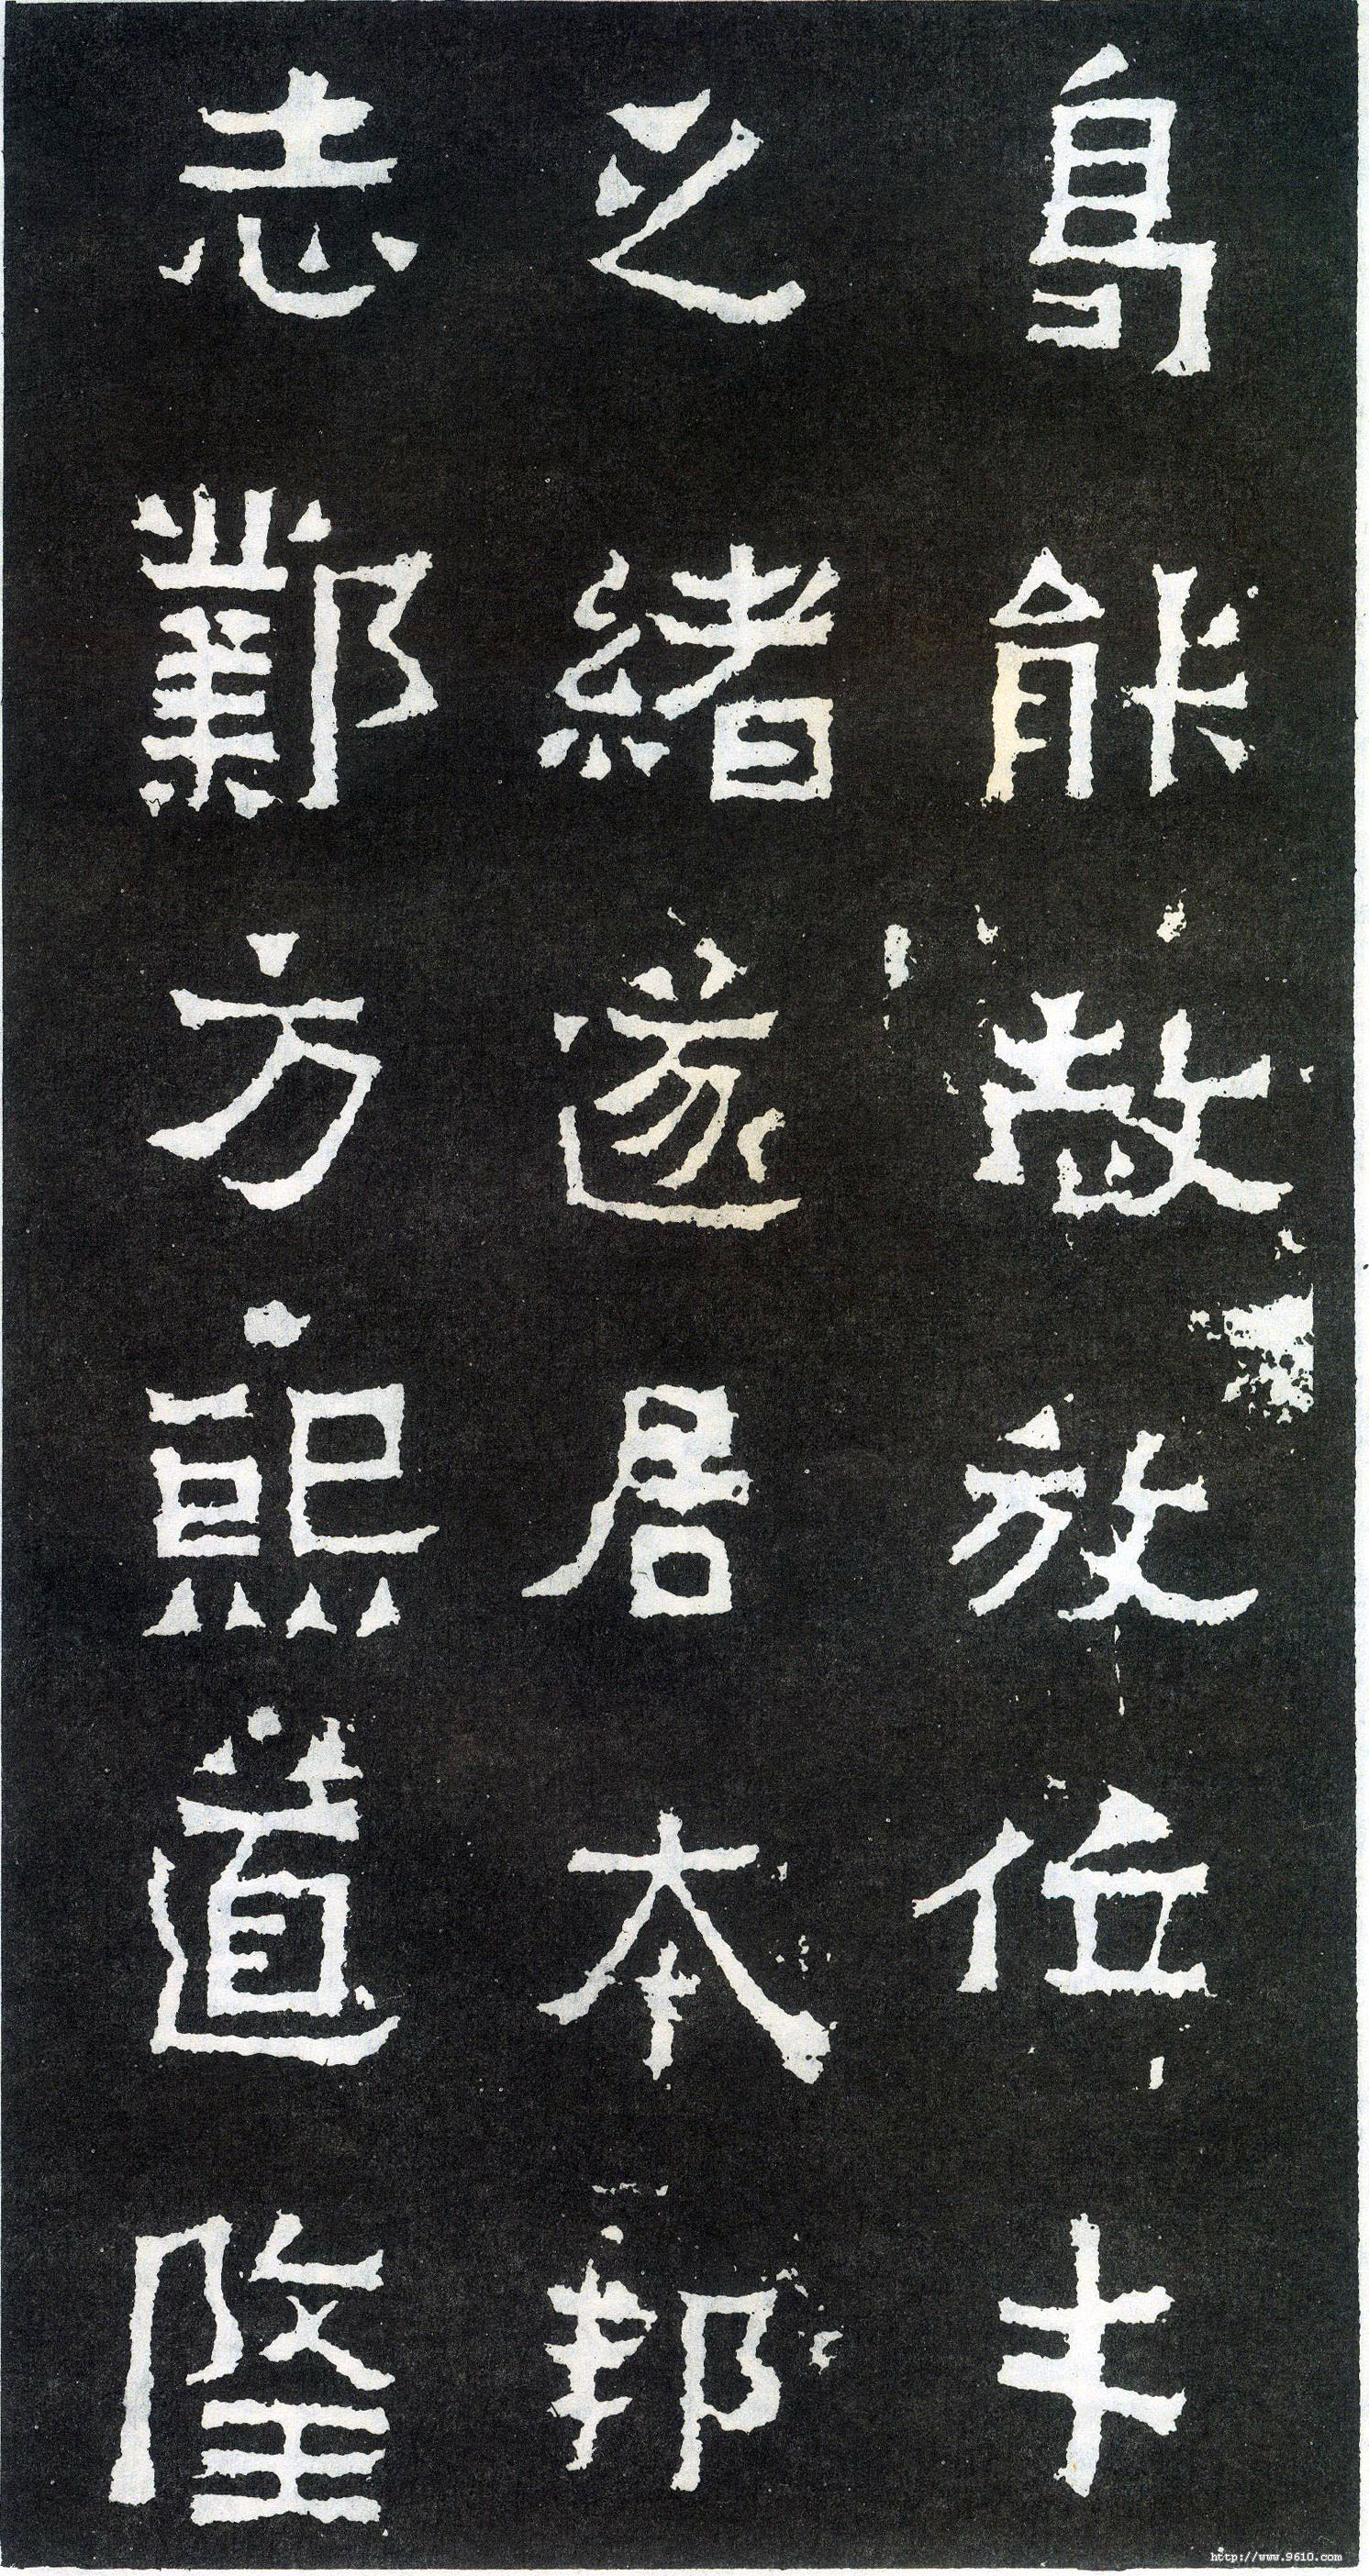 曷能赦放位才
之緒遂居本邦
志鄴方熙道隆
http://www.9610.com